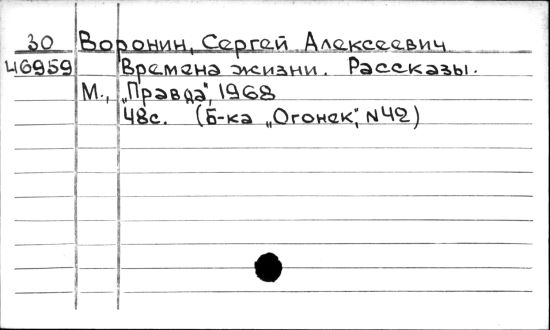 30 Воронин, Сергей Алексеевич
46959 Времена жизни. Рассказы.
М., „Правда", 1968
48с. (Б-ка „Огонек", №42)